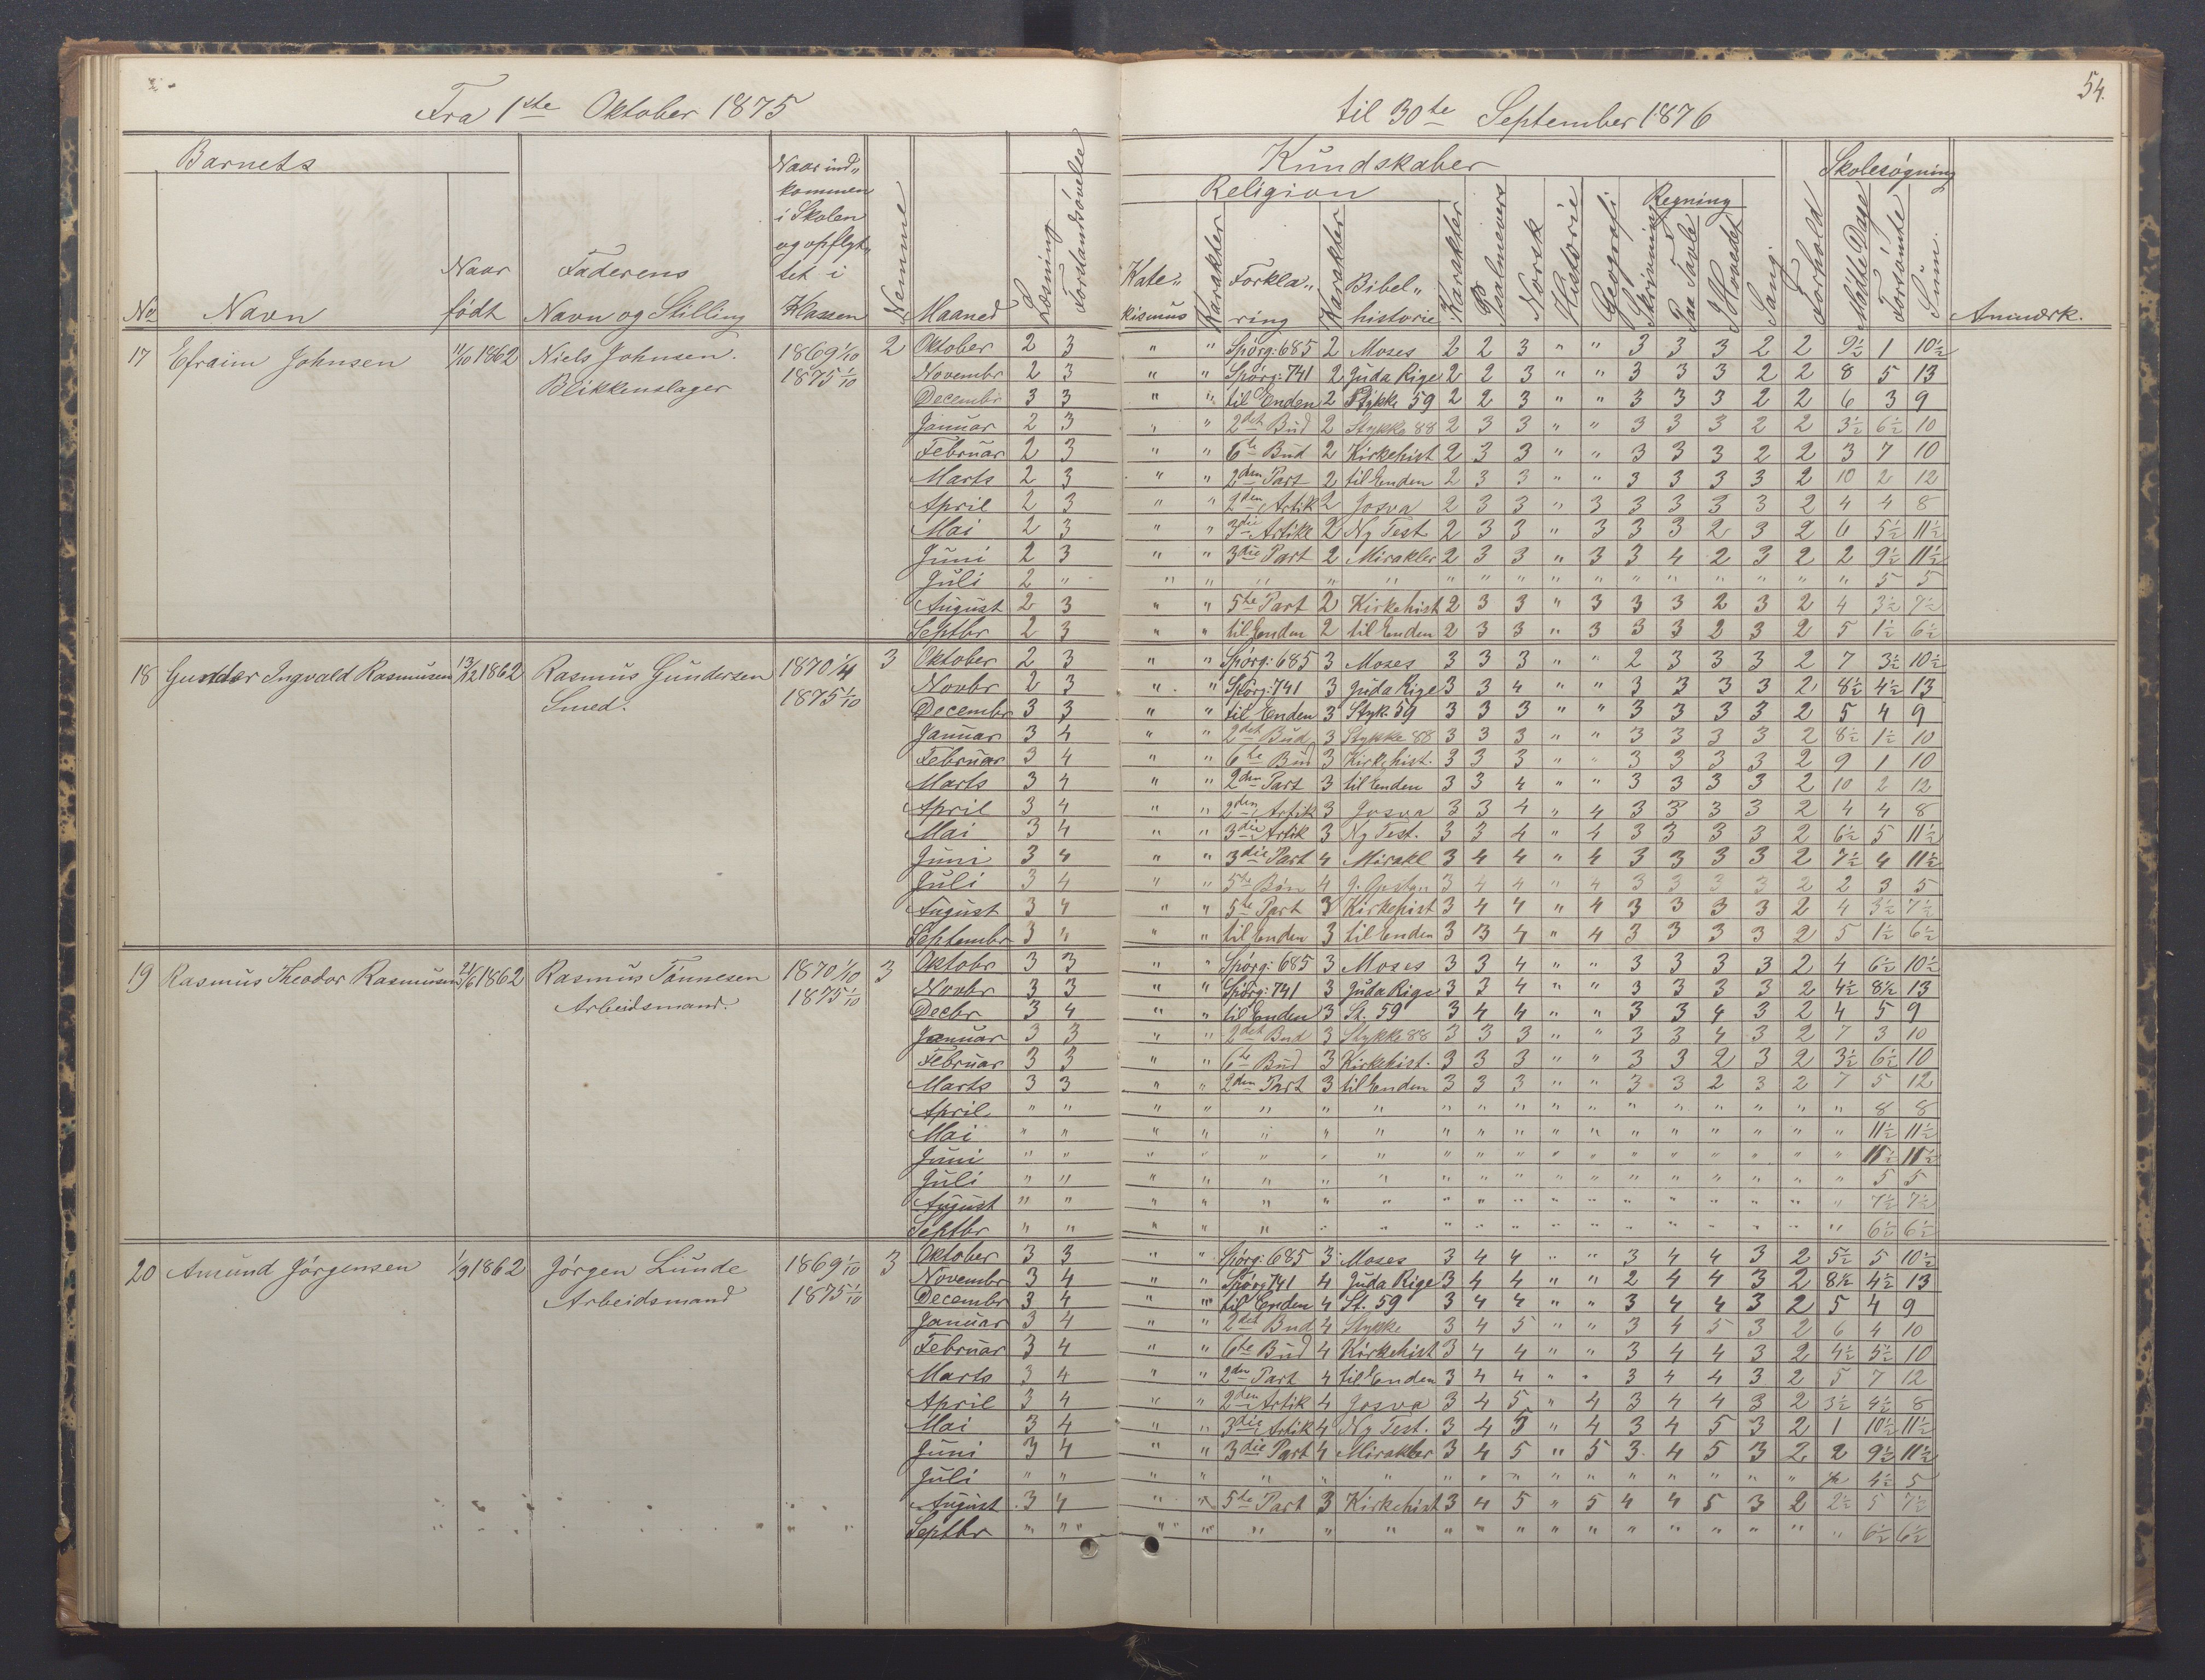 54.
Fra 1ste Oktober 1875 til 30te September 1876
Barnets Kundskaber Skolesøgning
Religion Regning
No Navn Naar født Faderens Navn og Stilling Naar ind„ kommen i Skolen og opflyt„ tet i Klassen Nemme Maaned Læsning Forstandsøvelse Kate„ kismus Karakter Forkla„ ring Karakter Bibel„ historie Karakter Psalmevers Norsk Historie Geografi Skrivning Paa Tavle I Hovedet Sang Forhold Mødte Dage Forsømte Sum. Anmærk.
17 Efraim Johnsen 11/10 1862 Niels Johnsen. 1869 1/10 2 Oktober 2 3 " " Spörg: 685 2 Moses 2 2 3 " " 3 3 3 2 2 9½ 1 10½
Blikkenslager 1875 1/10 Novembr 2 3 " " Spörg: 741 2 Juda Rige 2 2 3 " " 3 3 3 2 2 8 5 13
Decembr 3 3 " " til Enden 2 Stykke 59 2 2 3 " " 3 3 3 2 2 6 3 9
Januar 2 3 " " 2det Bud 2 Stykke 88 2 3 3 " " 3 3 3 2 2 3½ 6½ 10
Februar 2 3 " " 6te Bud 2 Kirkehist 2 3 3 " " 3 3 3 2 2 3 7 10
Marts 2 3 " " 2den Part 2 til Enden 2 3 3 " " 3 3 3 3 2 10 2 12
April 2 3 " " 2den Artik 2 Josva 2 3 3 " 3 3 3 3 3 2 4 4 8
Mai 2 3 " " 3die Artikl 2 Ny Test 2 3 3 " 3 3 3 2 3 2 6 5½ 11½
Juni 2 3 " " 3die Part 2 Mirakler 2 3 3 " 3 3 4 2 3 2 2 9½ 11½
Juli 2 " " " " " " " " " " " " " " " " " 5 5
August 2 3 " " 5te Part 2 Kirkehist 2 3 3 " 3 3 3 2 3 2 4 3½ 7½
Septbr 2 3 " " til Enden 2 til Enden 2 3 3 " 3 3 3 2 3 2 5 1½ 6½
18 Gunder Ingvald Rasmusen 13/12 1862 Rasmus Gundersen 1870 1/4 3 Oktober 2 3 " " Spörg: 685 3 Moses 3 3 3 " " 2 3 3 3 2 7 3½ 10½
Smed. 1875 1/10 Novbr 2 3 " " Spörg: 741 3 Juda Rige 3 3 4 " " 3 3 3 3 2 8½ 4½ 13
Decembr 3 3 " " til Enden 3 Styk. 59 3 3 3 " " 3 3 3 3 2 5 4 9
Januar 3 4 " " 2det Bud 3 Stykke 88 3 3 3 " " 3 3 3 3 2 8½ 1½ 10
Februar 3 4 " " 6te Bud 3 Kirkehist. 3 3 3 " " 3 3 3 3 2 9 1 10
Marts 3 4 " " 2den Part 3 til Enden 3 3 4 " " 3 3 3 3 2 10 2 12
April 3 4 " " 2den Artik 3 Josva 3 3 4 " 4 3 3 3 3 2 4 4 8
Mai 3 4 " " 3die Artik 3 Ny Test. 3 3 4 " 4 3 3 3 3 2 6½ 5 11½
Juni 3 4 " " 3die Part 4 Mirakl 3 4 4 " 4 3 3 3 3 2 7½ 4 11½
Juli 3 4 " " 5te Bön 4 3 4 4 " 4 3 3 3 3 2 2 3 5
August 3 4 " " 5te Part 3 Kirkehist 3 4 4 " 4 3 3 3 3 2 4 3½ 7½
Septembr 3 4 " " til Enden 3 til Enden 3 3 4 " 4 3 3 3 3 2 5 1½ 6½
19 Rasmus Theodor Rasmusen 21/6 1862 Rasmus Tönnesen 1870 1/10 3 Oktobr 3 3 " " Spörg: 685 3 Moses 3 3 4 " " 3 3 3 3 2 4 6½ 10½
Arbeidsmand. 1875 1/10 Novbr 3 3 " " Spörg: 741 3 Juda Rige 3 3 4 " " 3 3 3 3 2 4½ 8½ 13
Decbr 3 4 " " til Enden 3 St. 59 3 4 4 " " 3 3 4 3 2 4 5 9
Januar 3 3 " " 2det Bud 3 Stykke 88 3 3 3 " " 3 3 4 3 2 7 3 10
Februar 3 3 " " 6te Bud 3 Kirkehist. 3 3 3 " " 3 3 2 3 2 3½ 6½ 10
Marts 3 3 " " 2den Part 3 til Enden 3 3 3 " " 3 3 2 3 2 7 5 12
April " " " " " " " " " " " " " " " " " " " 8 8
Mai " " " " " " " " " " " " " " " " " " " 11½ 11½
Juni " " " " " " " " " " " " " " " " " " " 11½ 11½
Juli " " " " " " " " " " " " " " " " " " " 5 5
August " " " " " " " " " " " " " " " " " " " 7½ 7½
Septbr " " " " " " " " " " " " " " " " " " " 6½ 6½
20 Amund Jörgensen 1/9 1862 Jörgen Lunde 1869 1/10 3 Oktober 3 3 " " Spörg: 685 3 Moses 3 4 4 " " 3 4 4 3 2 5½ 5 10½
Arbeidsmand 1875 1/10 Novembr 3 4 " " Spörg 741 4 Juda Rige 3 4 4 " " 2 4 4 3 2 8½ 4½ 13
Decembr 3 4 " " til Enden 4 St. 59 3 4 4 " " 3 4 4 3 2 5 4 9
Januar 3 4 " " 2det Bud 4 Stykke 3 4 5 " " 3 4 5 3 2 6 4 10
Februar 3 4 " " 6te Bud 4 Kirkehist 3 4 4 " " 3 4 4 3 2 4½ 5½ 10
Marts 3 4 " " 2den Part 4 til Enden 3 4 4 " " 3 4 4 3 2 5 7 12
April 3 4 " " 2den Artik 4 Josva 3 4 5 " 4 3 4 4 3 2 3½ 4½ 8
Mai 3 4 " " 3die Artik 4 Ny Test. 3 4 5 " 4 3 4 5 3 2 1 10½ 11½
Juni 3 4 " " 3die Part 4 Mirakler 3 4 5 " 5 3 4 5 3 2 2 9½ 11½
Juli " " " " " " " " " " " " " " " " " " ½ 4½ 5
August 3 4 " " 5te Part 3 Kirkehist 3 4 5 " 5 4 4 5 3 2 2½ 5 7½
Septbr " " " " " " " " " " " " " " " " " " " 6½ 6½